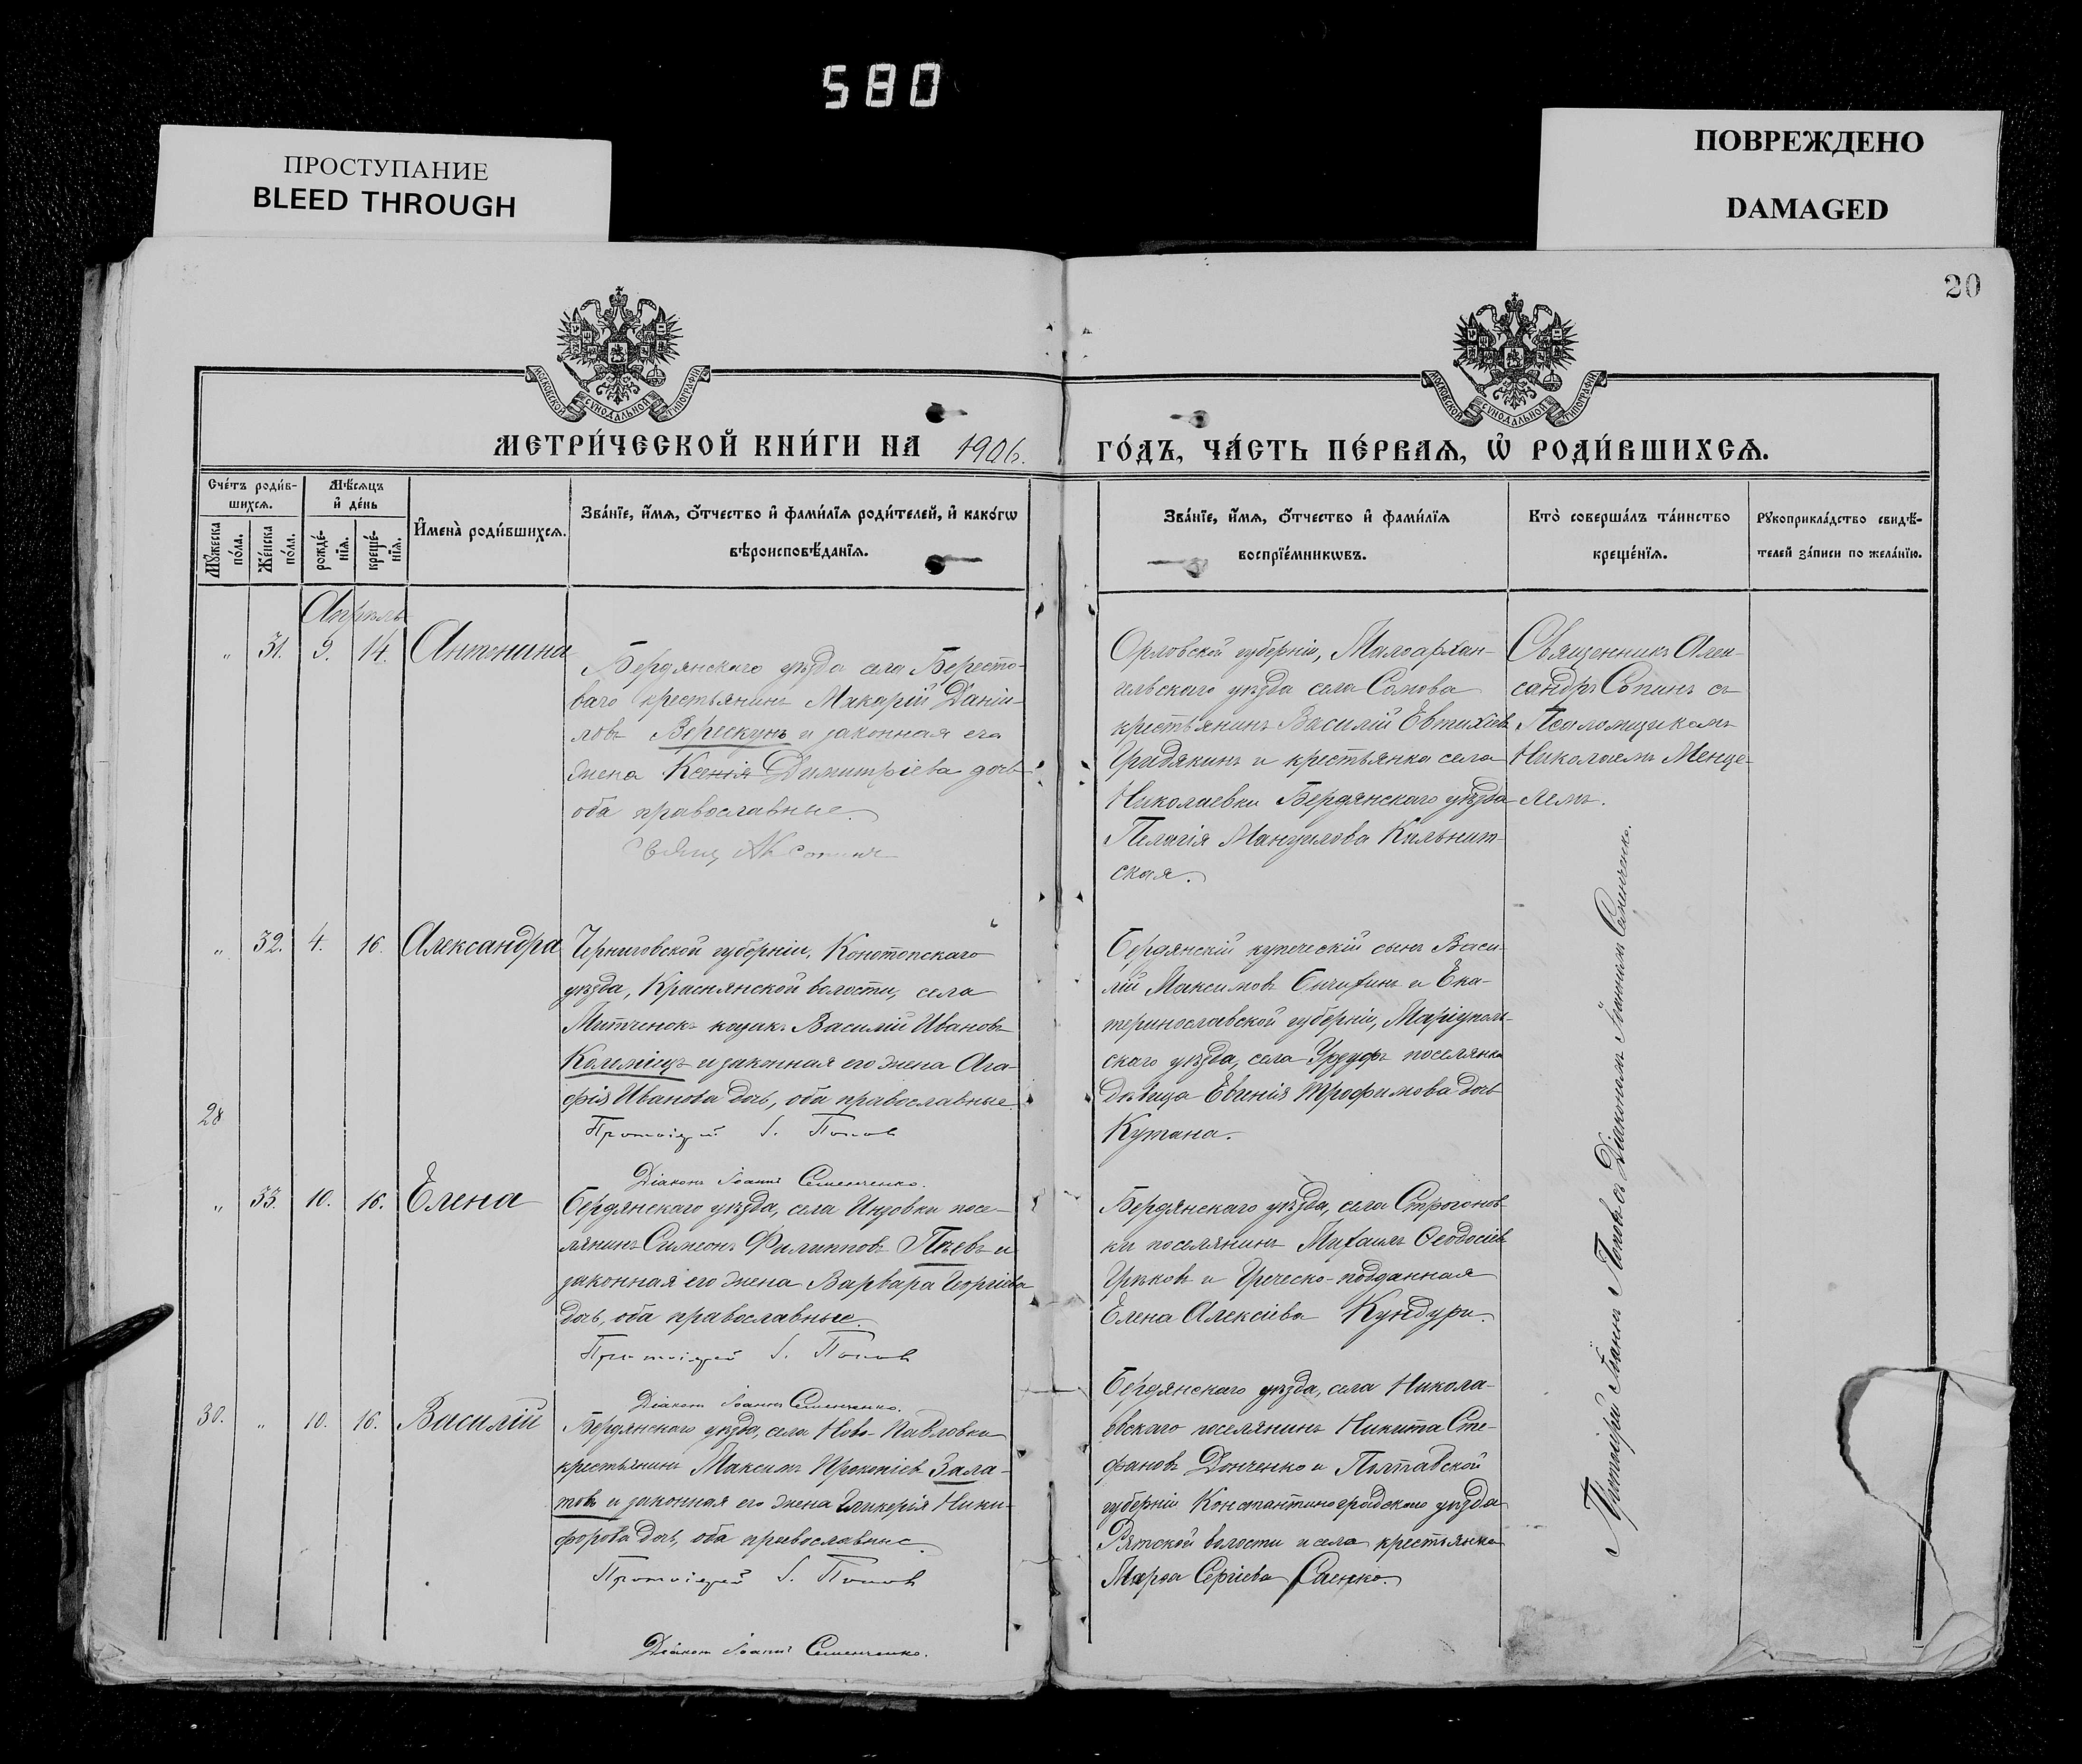 580
ПРОСТУПАНИЕ
BLEED THROUGH
ПОВРЕЖДЕНО
DAMAGED
20
МОСКОВСКОЙ СУНОДАЛЬНОЙ ТИПОГРАФІИ
МОСКОВСКОЙ СУНОДАЛЬНОЙ ТИПОГРАФІИ
МЕТРИ́ЧЕСКОЙ КНИ́ГИ НА 1906.
ГО́ДЪ, ЧА́СТЬ ПЕ́РВАѦ, Ѡ҆ РОДИ́ВШИХСѦ.
Сче́тъ роди́в-
шихсѧ.
Мꙋ́жеска по́ла.
Же́нска по́ла.
Мѣ́сѧцъ
и҆ де́нь
рожде́-
нїѧ.
креще́-
нїѧ.
И҆мена̀ роди́вшихсѧ.
Зва́нїе, и҆́мѧ, ѻ҆́тчество и҆ фами́лїѧ роди́телей, и҆ како́гѡ
вѣроисповѣ́данїѧ.
Зва́нїе, и҆́мѧ, ѻ҆́тчество и҆ фами́лїѧ
воспрїе́мникѡвъ.
Кто̀ соверша́лъ та́инство
креще́нїѧ.
Рꙋкоприкла́дство свидѣ́-
телей за́писи по жела́нїю.
Апрѣль
„ 31. 9. 14. Антонина
Бердянскаго уѣзда села Бересто-
ваго крестьянинъ Макарій Даніи-
ловъ Верескунъ и законная его
жена Ксенія Димитріева дочь
оба православные.
Свящ. Ал. Сопинъ
Орловской губерніи, Малоархан-
гельскаго уѣзда села Сомова
крестьянинъ Василій Евтихіевъ
Гридякинъ и крестьянка села
Николаевки Бердянскаго уѣзда
Пелагія Мануилова Кильнит-
ская.
Священникъ Алек-
сандръ Сопинъ съ
Псаломщикомъ
Николаемъ Менце-
лемъ.
„ 32. 4. 16. Александра
Черниговской губерніи, Конотопскаго
уѣзда, Краснянской волости, села
Митченокъ козакъ Василій Ивановъ
Коломіецъ и законная его жена Ага-
фія Иванова дочь, оба православные.
Протоіерей І. Поповъ
Діаконъ Іоаннъ Семенченко.
Бердянскій купеческій сынъ Васи-
лій Максимовъ и Ека-
теринославской губерніи, Маріуполь-
скаго уѣзда, села Урзуфъ поселянка
дѣвица Евгенія Трофимова дочь
Кутана.
28
„ 33. 10. 16. Елена
Бердянскаго уѣзда, села Инзовки посе-
лянинъ Симеонъ Филипповъ Пѣевъ и
законная его жена Варвара Георгіева
дочь, оба православные.
Протоіерей І. Поповъ
Діаконъ Іоаннъ Семенченко.
Бердянскаго уѣзда, села Строгонов-
ки поселянинъ Михаилъ Ѳеодосіевъ
Грѣковъ и Греческо-подданная
Елена Алексіева Кундури.
30. „ 10. 16. Василій
Бердянскаго уѣзда, села Ново-Павловки
крестьянинъ Максимъ Прокопіевъ Зала-
товъ и законная его жена Гликерія Ники-
форова дочь, оба православные.
Протоіерей І. Поповъ
Діаконъ Іоаннъ Семенченко.
Бердянскаго уѣзда, села Никола-
евскаго поселянинъ Никита Сте-
фановъ Донченко и Полтавской
губерніи Константиноградскаго уѣзда
волости и села крестьянка
Марѳа Сергіева Саенко.
Протоіерей Іоаннъ Поповъ съ Діакономъ Іоанномъ Семенченко.